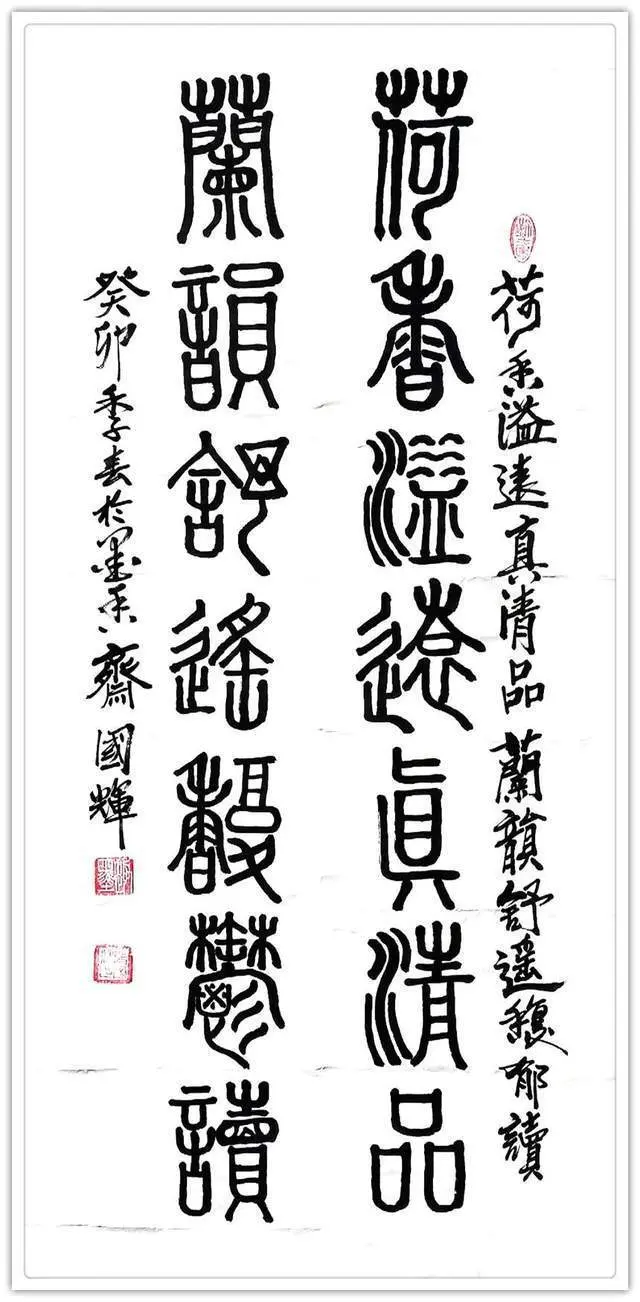 荷香溢遠真清品蘭韻舒遥馥郁讀
荷香溢遠眞清品
蘭韻舒遙馥鬱讀
癸卯季春於墨香齋國輝